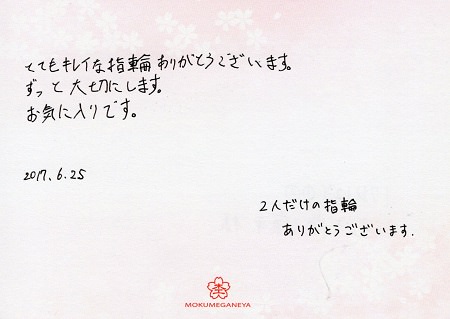 とてもキレイな指輪ありがとうございます。
ずっと大切にします。
お気に入りです。
2017.6.25
2人だけの指輪
ありがとうございます.
MOKUMEGANEYA